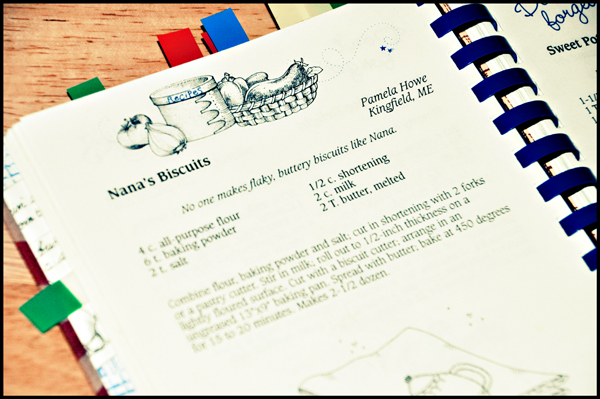 Recipes
Pamela Howe
Kingfield, ME
Nana's Biscuits
No one makes flaky, buttery biscuits like Nana.
4 c. all-purpose flour
6 t. baking powder
2 t. salt
1/2 c. shortening
2 c. milk
2 T. butter, melted
Combine flour, baking powder and salt; cut in shortening with 2 forks
or a pastry cutter. Stir in milk; roll out to 1/2-inch thickness on a
lightly floured surface. Cut with a biscuit cutter; arrange in an
ungreased 13"x9" baking pan. Spread with butter; bake at 450 degrees
for 15 to 20 minutes. Makes 2-1/2 dozen.
Sweet Po